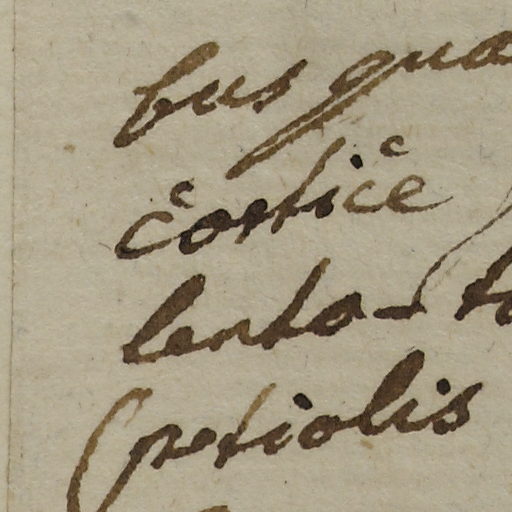 bus qua
cortice
lento-to
petiolis